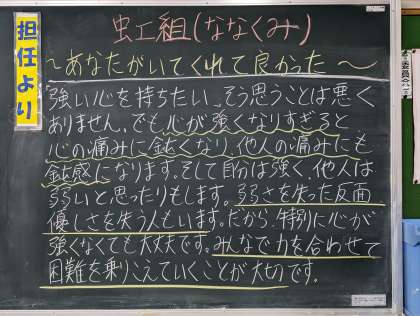 担任より
虹組(ななくみ)
〜あなたがいてくれて良かった〜
強い心を持ちたい。そう思うことは悪く
ありません。でも心が強くなりすぎると
心の痛みに鈍くなり、他人の痛みにも
鈍感になります。そして自分は強く、他人は
弱いと思ったりもします。弱さを失った反面
優しさを失う人もいます。だから、特別に心が
強くなくても大丈夫です。みんなで力を合わせて
困難を乗りこえていくことが大切です。